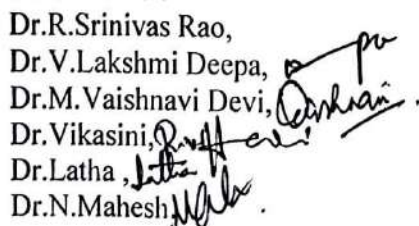 Dr.R.Srinivas Rao,
Dr.V.Lakshmi Deepa,
Dr.M.Vaishnavi Devi,
Dr.Vikasini,
Dr.Latha , Latha
Dr.N.Mahesh